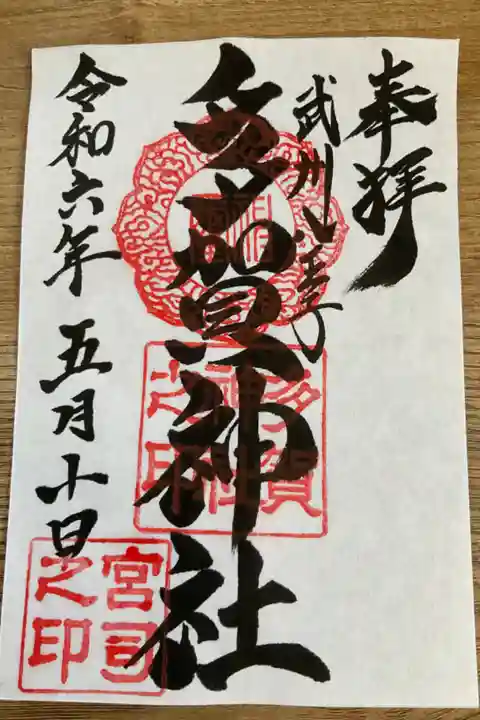 奉拝
武州八王子
多賀神社
令和六年五月十日
多賀
神社
之印
宮司
之印